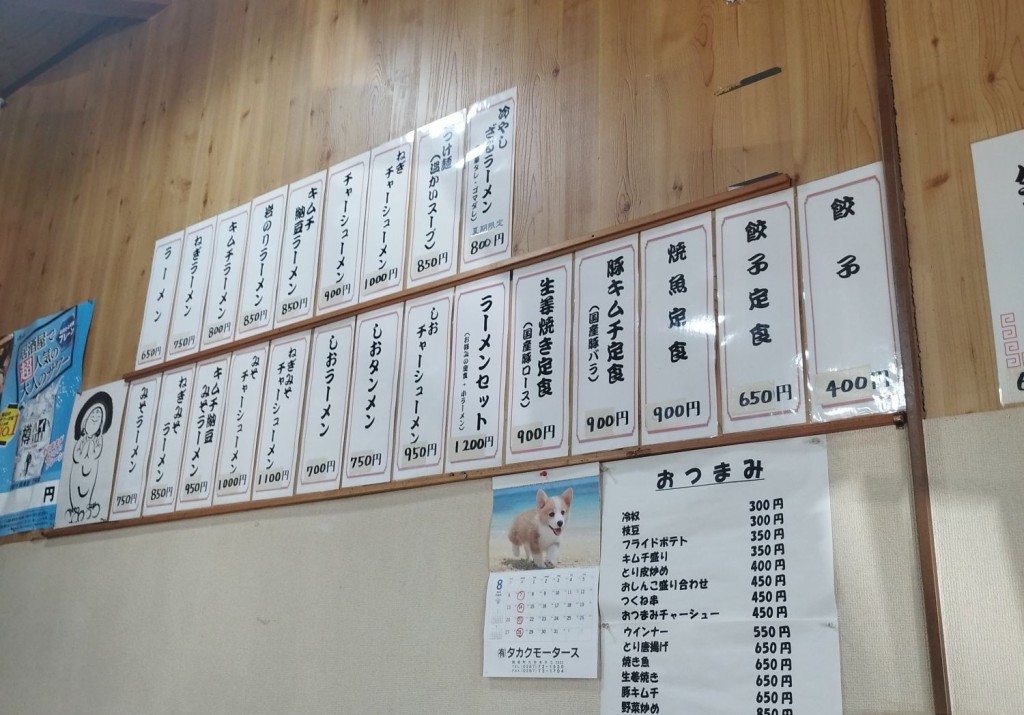 冷やし
ざるラーメン
夏期限定
800円
つけ麺
(温かいスープ)
850円
ねぎ
チャーシューメン
1000円
チャーシューメン
900円
キムチ
納豆ラーメン
850円
岩のりラーメン
850円
キムチラーメン
800円
ねぎラーメン
750円
ラーメン
650円
餃子
400円
餃子定食
650円
焼魚定食
900円
豚キムチ定食
(国産豚バラ)
900円
生姜焼き定食
(国産豚ロース)
900円
ラーメンセット
(お好みの定食・小ラーメン)
1200円
しお
チャーシューメン
950円
しおタンメン
750円
しおラーメン
700円
ねぎみそ
チャーシューメン
1100円
みそ
チャーシューメン
1000円
キムチ納豆
みそラーメン
950円
ねぎみそ
ラーメン
850円
みそラーメン
750円
居酒屋で
超人気の
円
8
(有)タカクモータース
おつまみ
300円
冷奴 300円
枝豆 350円
フライドポテト 350円
キムチ盛り 400円
とり皮炒め 450円
おしんこ盛り合わせ 450円
つくね串 450円
おつまみチャーシュー
ウインナー 550円
とり唐揚げ 650円
焼き魚 650円
生姜焼き 650円
豚キムチ 650円
野菜炒め 850円